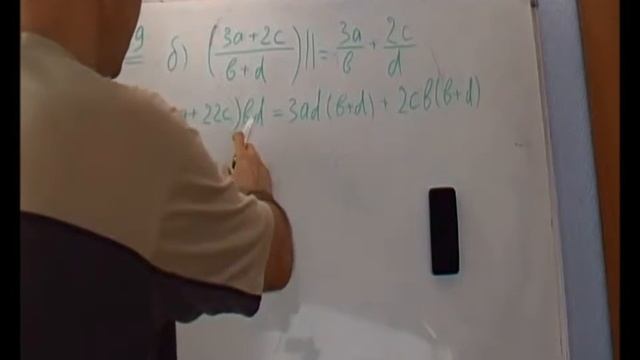 9 б) (3a+2c / b+d) 11 = 3a/b + 2c/d
+ 22c) bd = 3ad(b+d) + 2cb(b+d)